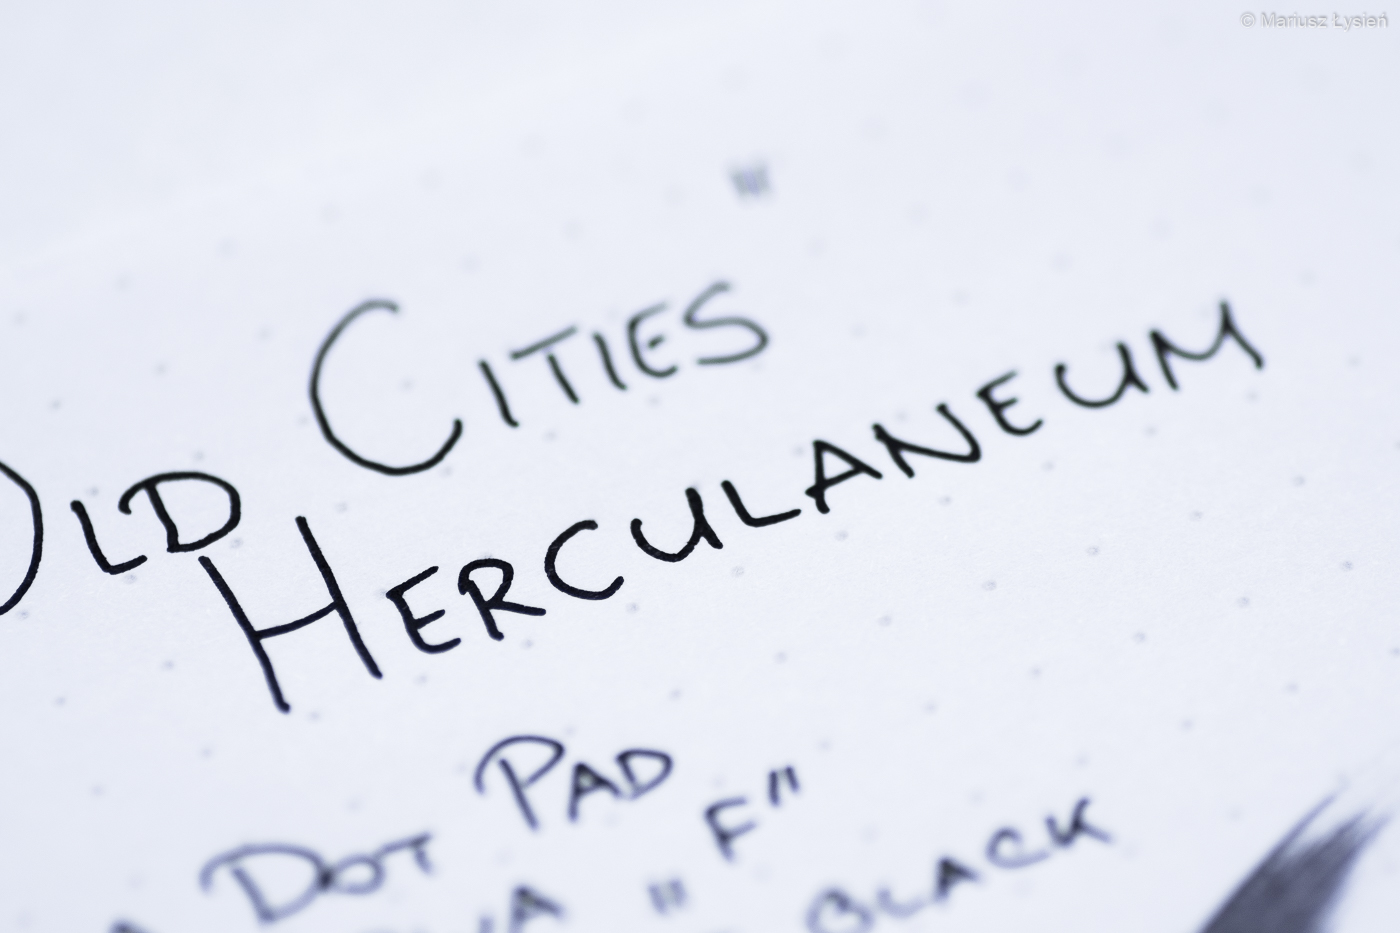 © Mariusz Łysień
Old Cities
Herculaneum
Dot Pad
"F"
Black